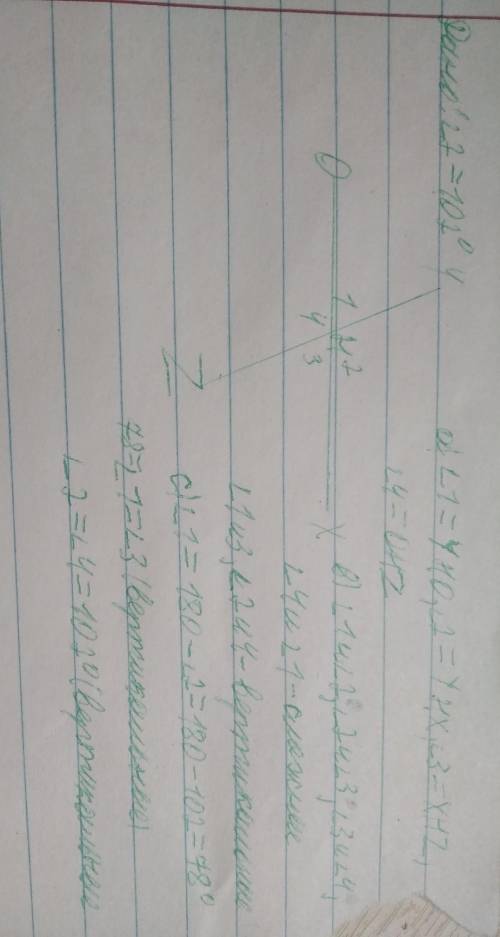 Дано: ∠2=102°
Y
O
1
2
4
3
H
X
Z
а) ∠1=YHO, 2=YHX, ∠3=XHZ,
∠4=OHZ
в) ∠1и∠2; ∠2и∠3; ∠3и∠4;
∠4и∠1-смежные
∠1и3, ∠2и4-вертикальные
с) ∠1=180-∠2=180-102=78°
78=∠1=∠3(вертикальные)
∠2=∠4=102°(вертикальные